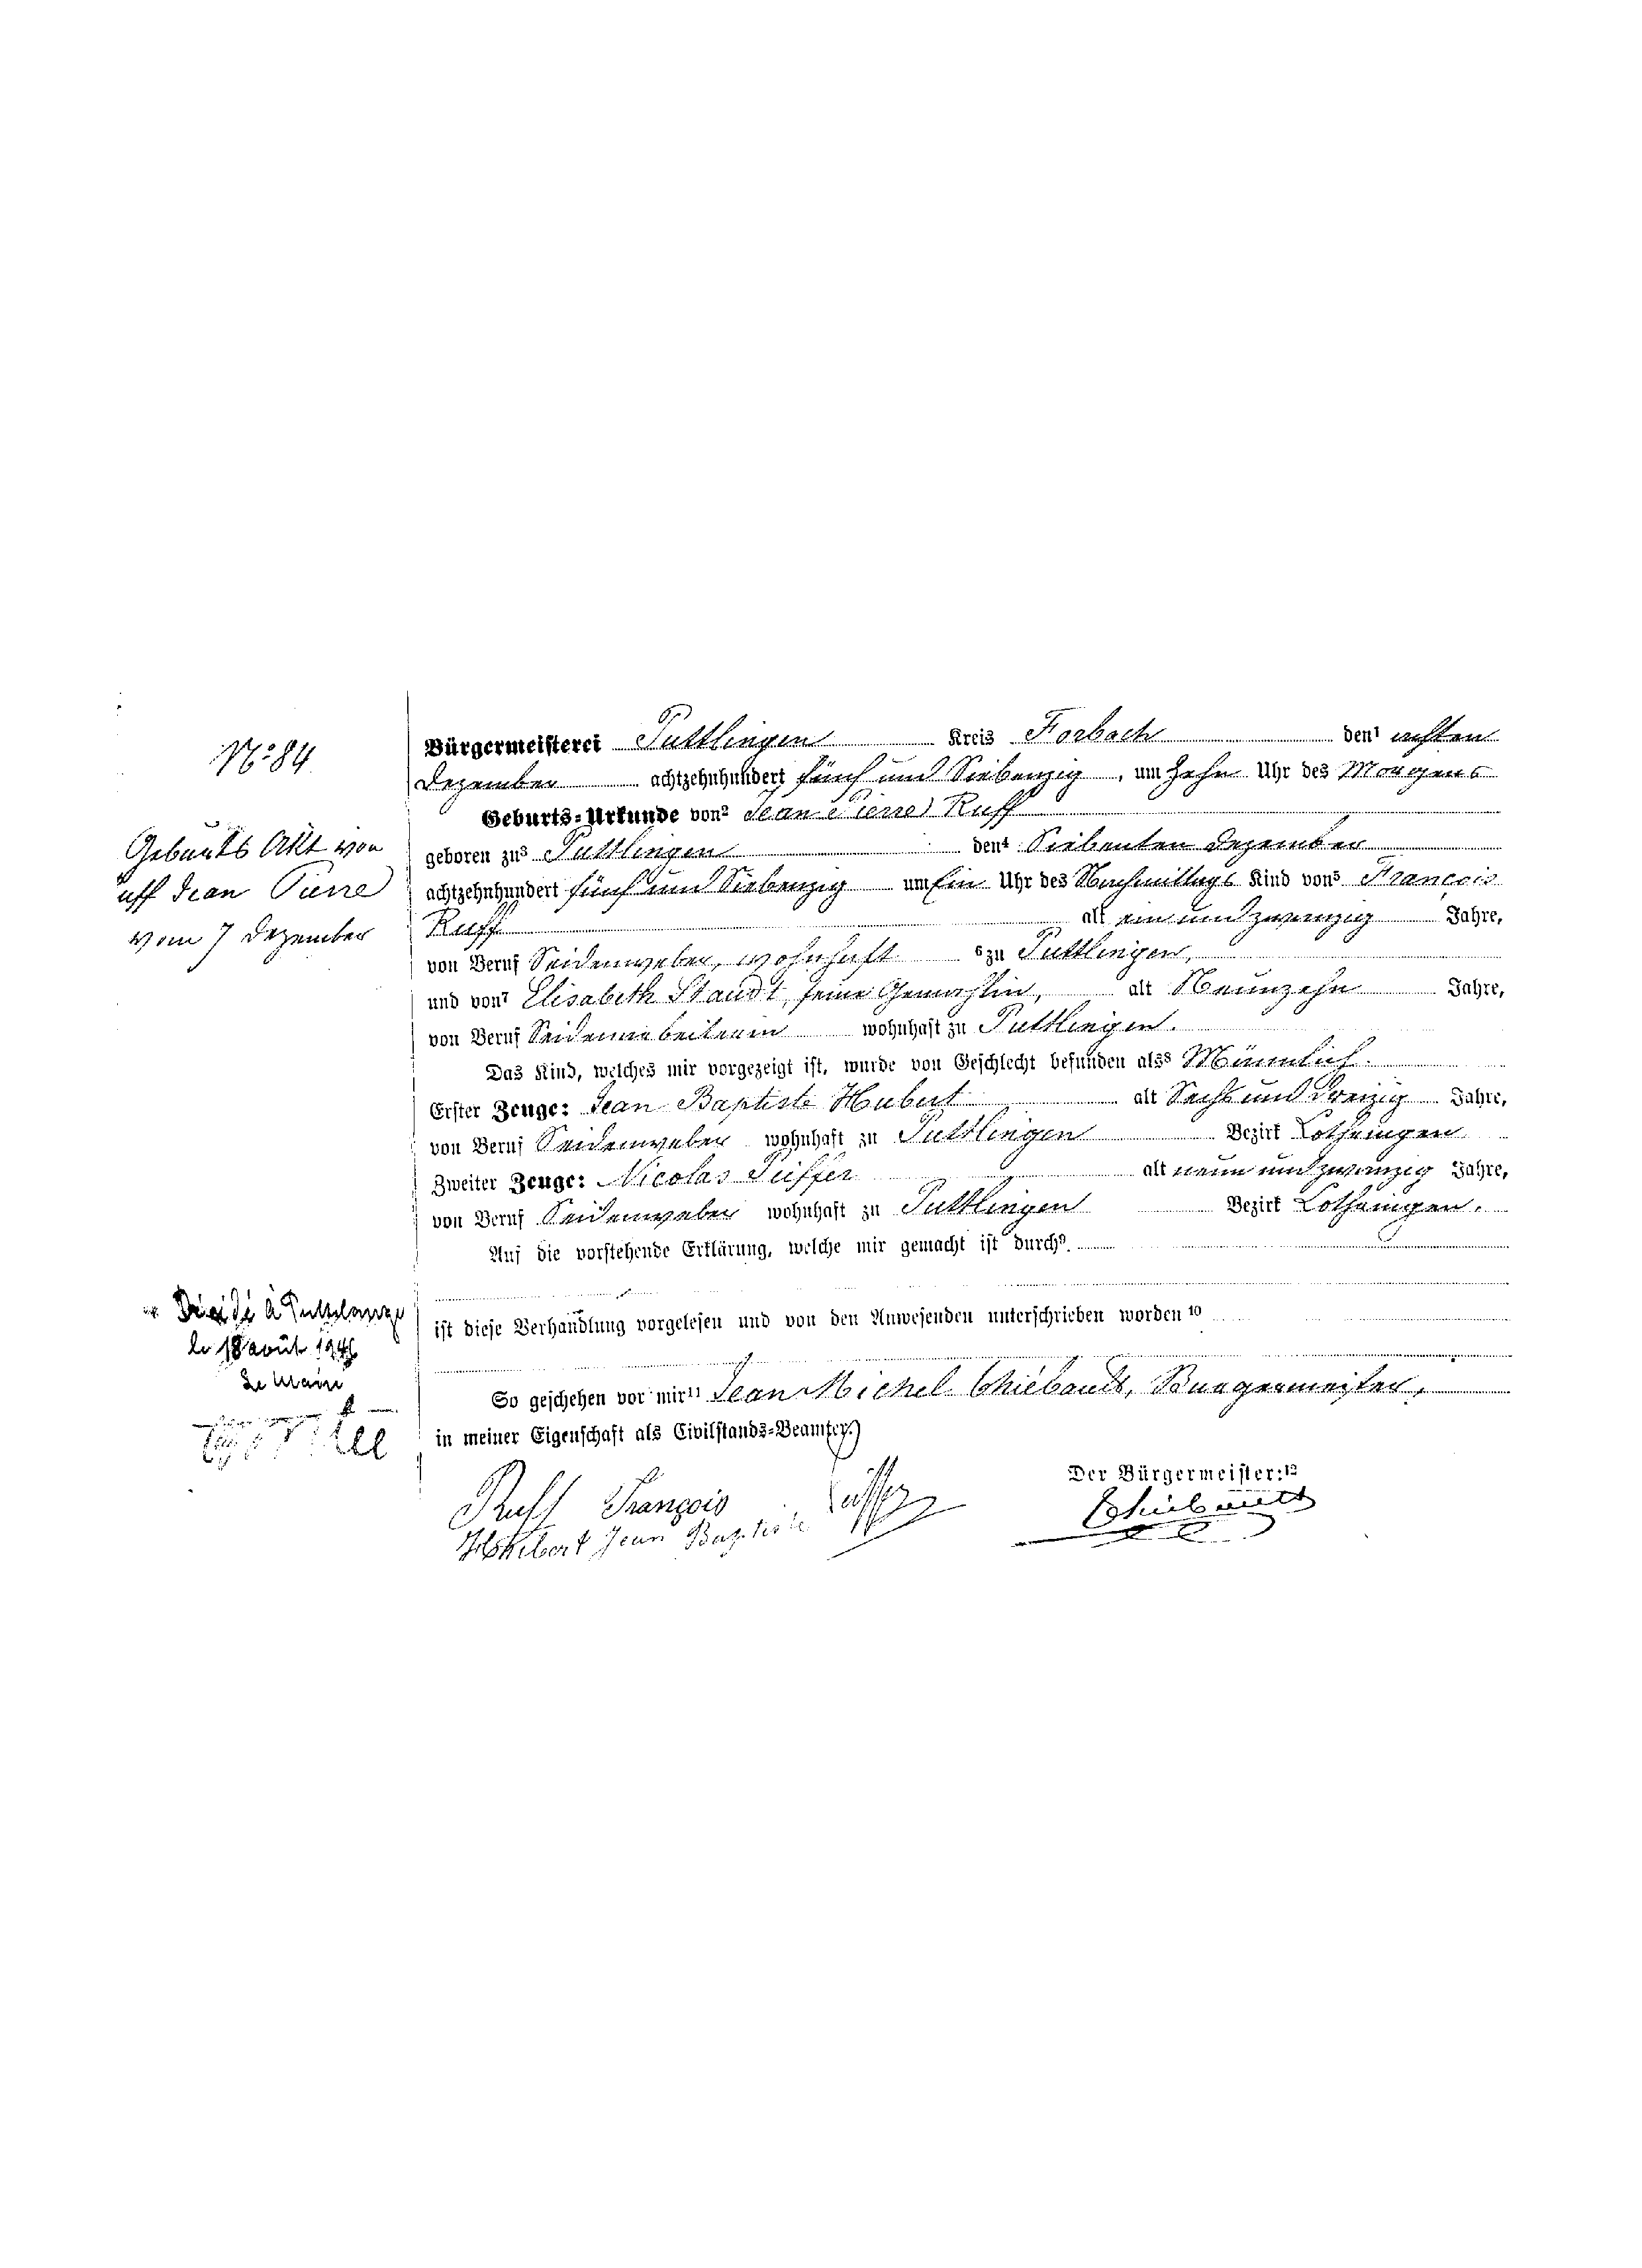 Nº 84
Geburts Akt von
uff Jean Pierre
vom 7 Dezember
Bürgermeisterei Puttlingen Kreis Forbach den¹ achten
Dezember achtzehnhundert fünf und Siebenzig, um Zehn Uhr des Morgens
Geburts-Urkunde von² Jean Pierre Ruff
geboren zu³ Puttlingen den⁴ Siebenten Dezember
achtzehnhundert fünf und Siebenzig um Ein Uhr des Nachmittags Kind von⁵ François
Ruff alt ein und zwanzig Jahre,
von Beruf Seidenweber, wohnhaft ⁶zu Puttlingen,
und von⁷ Elisabeth Staudt, seine Gemahlin, alt Neunzehn Jahre,
von Beruf Seidenarbeiterin wohnhaft zu Puttlingen.
Das Kind, welches mir vorgezeigt ist, wurde von Geschlecht befunden als⁸ Männlich.
Erster Zeuge: Jean Baptiste Hubert alt Sechs und Dreizig Jahre,
von Beruf Seidenweber wohnhaft zu Puttlingen Bezirk Lothringen
Zweiter Zeuge: Nicolas alt neun und zwanzig Jahre,
von Beruf Seidenweber wohnhaft zu Puttlingen Bezirk Lothringen.
Auf die vorstehende Erklärung, welche mir gemacht ist durch⁹
ist diese Verhandlung vorgelesen und von den Anwesenden unterschrieben worden ¹⁰
So geschehen vor mir¹¹ Jean Michel Thiébault, Burgermeister,
in meiner Eigenschaft als Civilstands-Beamter.
Décédé à Puttelange
le 18 août 194
Le Maire
Der Bürgermeister:¹²
Ruff François
Hubert Jean Baptiste
Thiebault